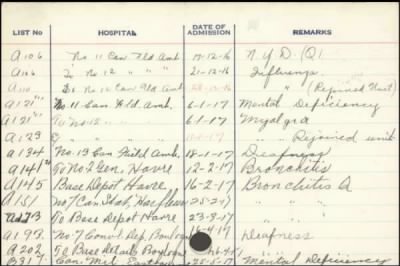 LIST No HOSPITAL DATE OF ADMISSION REMARKS
A106 No 11 Can Fld Amb. 17-12-16 N.Y.D. (Q)
A116 To No 12 " " " 21-12-16 Influenza
No 12 Can Fld Amb 28-12-16 " (Rejoined Unit)
A121 No 11 Can Fld. Amb. 6-1-17 Mental Deficiency
A121 To No 12 " " " 6-1-17 Myalgia
A123 " " " 11-1-17 " Rejoined unit
A134 No. 13 Can Field Amb. 18-1-17 Deafness
A141 To No 2 Gen, Havre 12-2-17 Bronchitis
A145 Base Depot Havre 16-2-17 Bronchitis A
A151 No 7 Can Stat, Harfleur "
To Base Depot Havre 23-3-17 "
A193 No 7 Conv. Dep. Boulogne 16-4-17 Deafness
A202 To Base Details Boulogne "
B317 Can. Mil. 25-5-17 Mental Deficiency